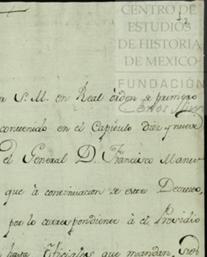 CENTRO DE
ESTUDIOS
DE HISTORIA
DE MEXICO
FUNDACIÓN
S. M. en Real orden de primero
contenido en el Capitulo diez y nueve
el General D. Francisco Manu
que à continuacion de este Decreto,
por lo correspondiente à el Presidio
hasta Oficiales que mandan